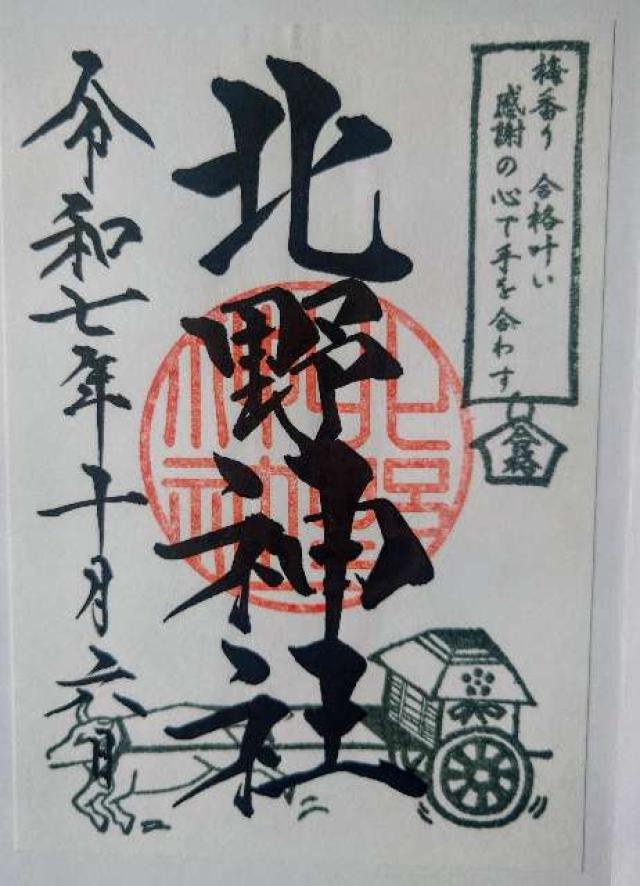 梅香り 合格叶い
感謝の心で手を合わす
合格
北野神社
令和七年十月六日